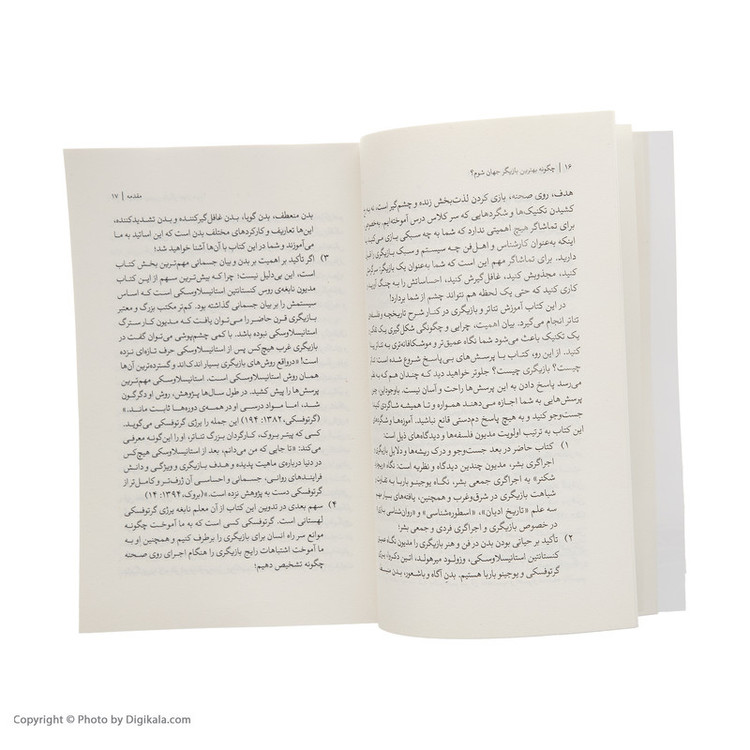 ۱۶ | چگونه بهترین بازیگر جهان شوم؟
هدف، روی صحنه، بازی کردن لذت‌بخش زنده و چشم‌گیر است. نه به رخ
کشیدن تکنیک‌ها و شگردهایی که سر کلاس درس آموخته‌ایم. به‌خصوص
برای تماشاگر هیچ اهمیتی ندارد که شما به چه سبکی بازی می‌کنید.
اینکه به‌عنوان کارشناس و اهل‌فن چه سیستم و سبک بازیگری را قبول
دارید. برای تماشاگر مهم این است که شما به‌عنوان یک بازیگر سرگرمش
کنید، مجذوبش کنید، غافل‌گیرش کنید، احساساتش را به چنگ آورید
کاری کنید که حتی یک لحظه هم نتواند چشم از شما بردارد!
در این کتاب آموزش تئاتر و بازیگری در کنار شرح تاریخچه و فلسفه
تئاتر انجام می‌گیرد. بیان اهمیت، چرایی و چگونگی شکل‌گیری یک
یک تکنیک باعث می‌شود شما نگاه عمیق‌تر و موشکافانه‌تری به تئاتر
کنید. از این رو، کتاب با پرسش‌های بی‌پاسخ شروع شده است:
چیست؟ بازیگری چیست؟ جلوتر خواهید دید که چندان هم که به
می‌رسد پاسخ دادن به این پرسش‌ها راحت و آسان نیست. باوجوداین، چنین
پرسش‌هایی به شما اجازه می‌دهند همواره و تا همیشه شاگردی
جست‌وجو کنید و به هیچ پاسخ دم‌دستی قانع نباشید. آموزه‌ها و شگردهای
این کتاب به ترتیب اولویت مدیون فلسفه‌ها و دیدگاه‌های ذیل است:
۱) کتاب حاضر در بعد جست‌وجو و درک ریشه‌ها و دلایل بازیگری
اجراگری بشر، مدیون چندین دیدگاه و نظریه است:
شکنر» به اجراگری جمعی بشر، نگاه یوجینو باربا به تفاوت
شباهت بازیگری در شرق‌وغرب و همچنین، یافته‌های بسیار
سه علم «تاریخ ادیان»، «اسطوره‌شناسی» و «روان‌شناسی بازی»
در خصوص بازیگری و اجراگری فردی و جمعی بشر؛
۲) تأکید بر حیاتی بودن بدن در فن و هنر بازیگری را مدیون نگاه
کنستانتین استانیسلاوسکی، وزولود میرهولد، اتین دکرو،
گرتوفسکی و یوجینو باربا هستیم. بدن آگاه و باشعور، بدن
مقدمه | ۱۷
بدن منعطف، بدن گویا، بدن غافل‌گیرکننده و بدن تشدیدکننده،
این‌ها تعاریف و کارکردهای مختلف بدن است که این اساتید به ما
می‌آموزند و شما در این کتاب با آن‌ها آشنا خواهید شد؛
۳) اگر تأکید بر اهمیت بر بدن و بیان جسمانی مهم‌ترین بخش کتاب
است، این بی‌دلیل نیست؛ چرا که بیش‌ترین سهم از این کتاب
مدیون نابغه‌ی روس کنستانتین استانیسلاوسکی است که اساس
سیستمش را بر بیان جسمانی گذاشته بود. کم‌تر مکتب بزرگ و معتبر
بازیگری قرن حاضر را می‌توان یافت که مدیون کار سترگ
استانیسلاوسکی نبوده باشد. با کمی چشم‌پوشی می‌توان گفت در
بازیگری غرب هیچ‌کس پس از استانیسلاوسکی حرف تازه‌ای نزده
است! «درواقع روش‌های بازیگری بسیار اندک‌اند و گسترده‌ترین آن‌ها
همان روش استانیسلاوسکی است. استانیسلاوسکی مهم‌ترین
پرسش‌ها را پیش کشید. در طول سال‌ها پژوهش، روش او دگرگون
شد، اما مواد درسی او در همه‌ی دوره‌ها ثابت ماند.»
(گرتوفسکی، ۱۳۸۲: ۱۹۴) این جمله را یرژی گرتوفسکی می‌گوید.
کسی که پیتر بروک، کارگردان بزرگ تئاتر، او را این‌گونه معرفی
می‌کند: «تا جایی که من می‌دانم، بعد از استانیسلاوسکی هیچ‌کس
در دنیا درباره‌ی ماهیت پدیده و هدف بازیگری و ویژگی و دانش
فرایندهای روانی، جسمانی و احساسی آن ژرف‌تر و کامل‌تر از
گرتوفسکی دست به پژوهش نزده است.»(بروک، ۱۳۹۴: ۱۴)
۴) سهم بعدی در تدوین این کتاب از آن معلم نابغه یرژی گرتوفسکی
لهستانی است. گرتوفسکی کسی است که به ما آموخت چگونه
موانع سر راه انسان برای بازیگری را برطرف کنیم و همچنین او به
ما آموخت اشتباهات رایج بازیگری را هنگام اجرای روی صحنه
چگونه تشخیص دهیم؛
Copyright © Photo by Digikala.com